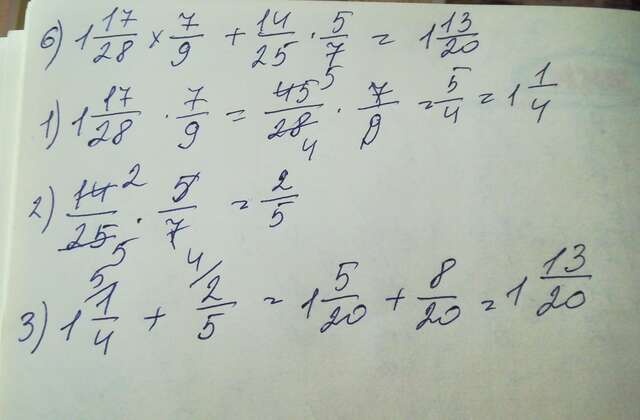 б) 1 17/28 × 7/9 + 14/25 · 5/7 = 1 13/20
1) 1 17/28 · 7/9 = 45/28 5 4 · 7/9 = 5/4 = 1 1/4
2) 14/25 2 5 · 5/7 = 2/5
3) 1 1/4 5 + 2/5 4 = 1 5/20 + 8/20 = 1 13/20